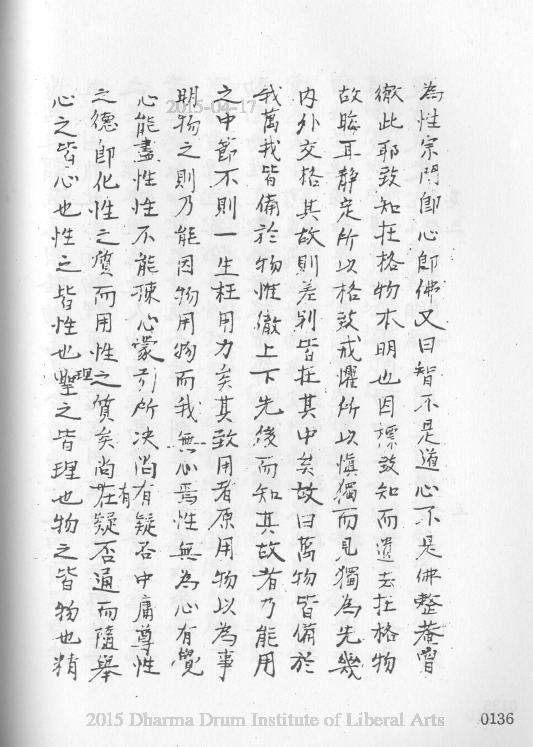 為性宗門卽心卽佛又曰智不是道心不是佛整菴曾
徹此耶致知在格物本明也因標致知而遺去在格物
故晦耳静定所以格致戒懼所以慎獨而見獨為先幾
内外交格其故則差别皆在其中矣故曰萬物皆備於
我萬我皆備於物惟徹上下先後而知其故者乃能用
之中節不則一生枉用力矣其致用者原用物以為事
明物之則乃能因物用物而我無心焉性無為心有覺
心能盡性性不能揀心蒙引所决尚有疑否中庸尊性
之德卽化性之質而用性理之質矣尚在有疑否通而隨舉
心之皆心也性之皆性也理之皆理也物之皆物也精
2015-04-17
2015 Dharma Drum Institute of Liberal Arts
0136